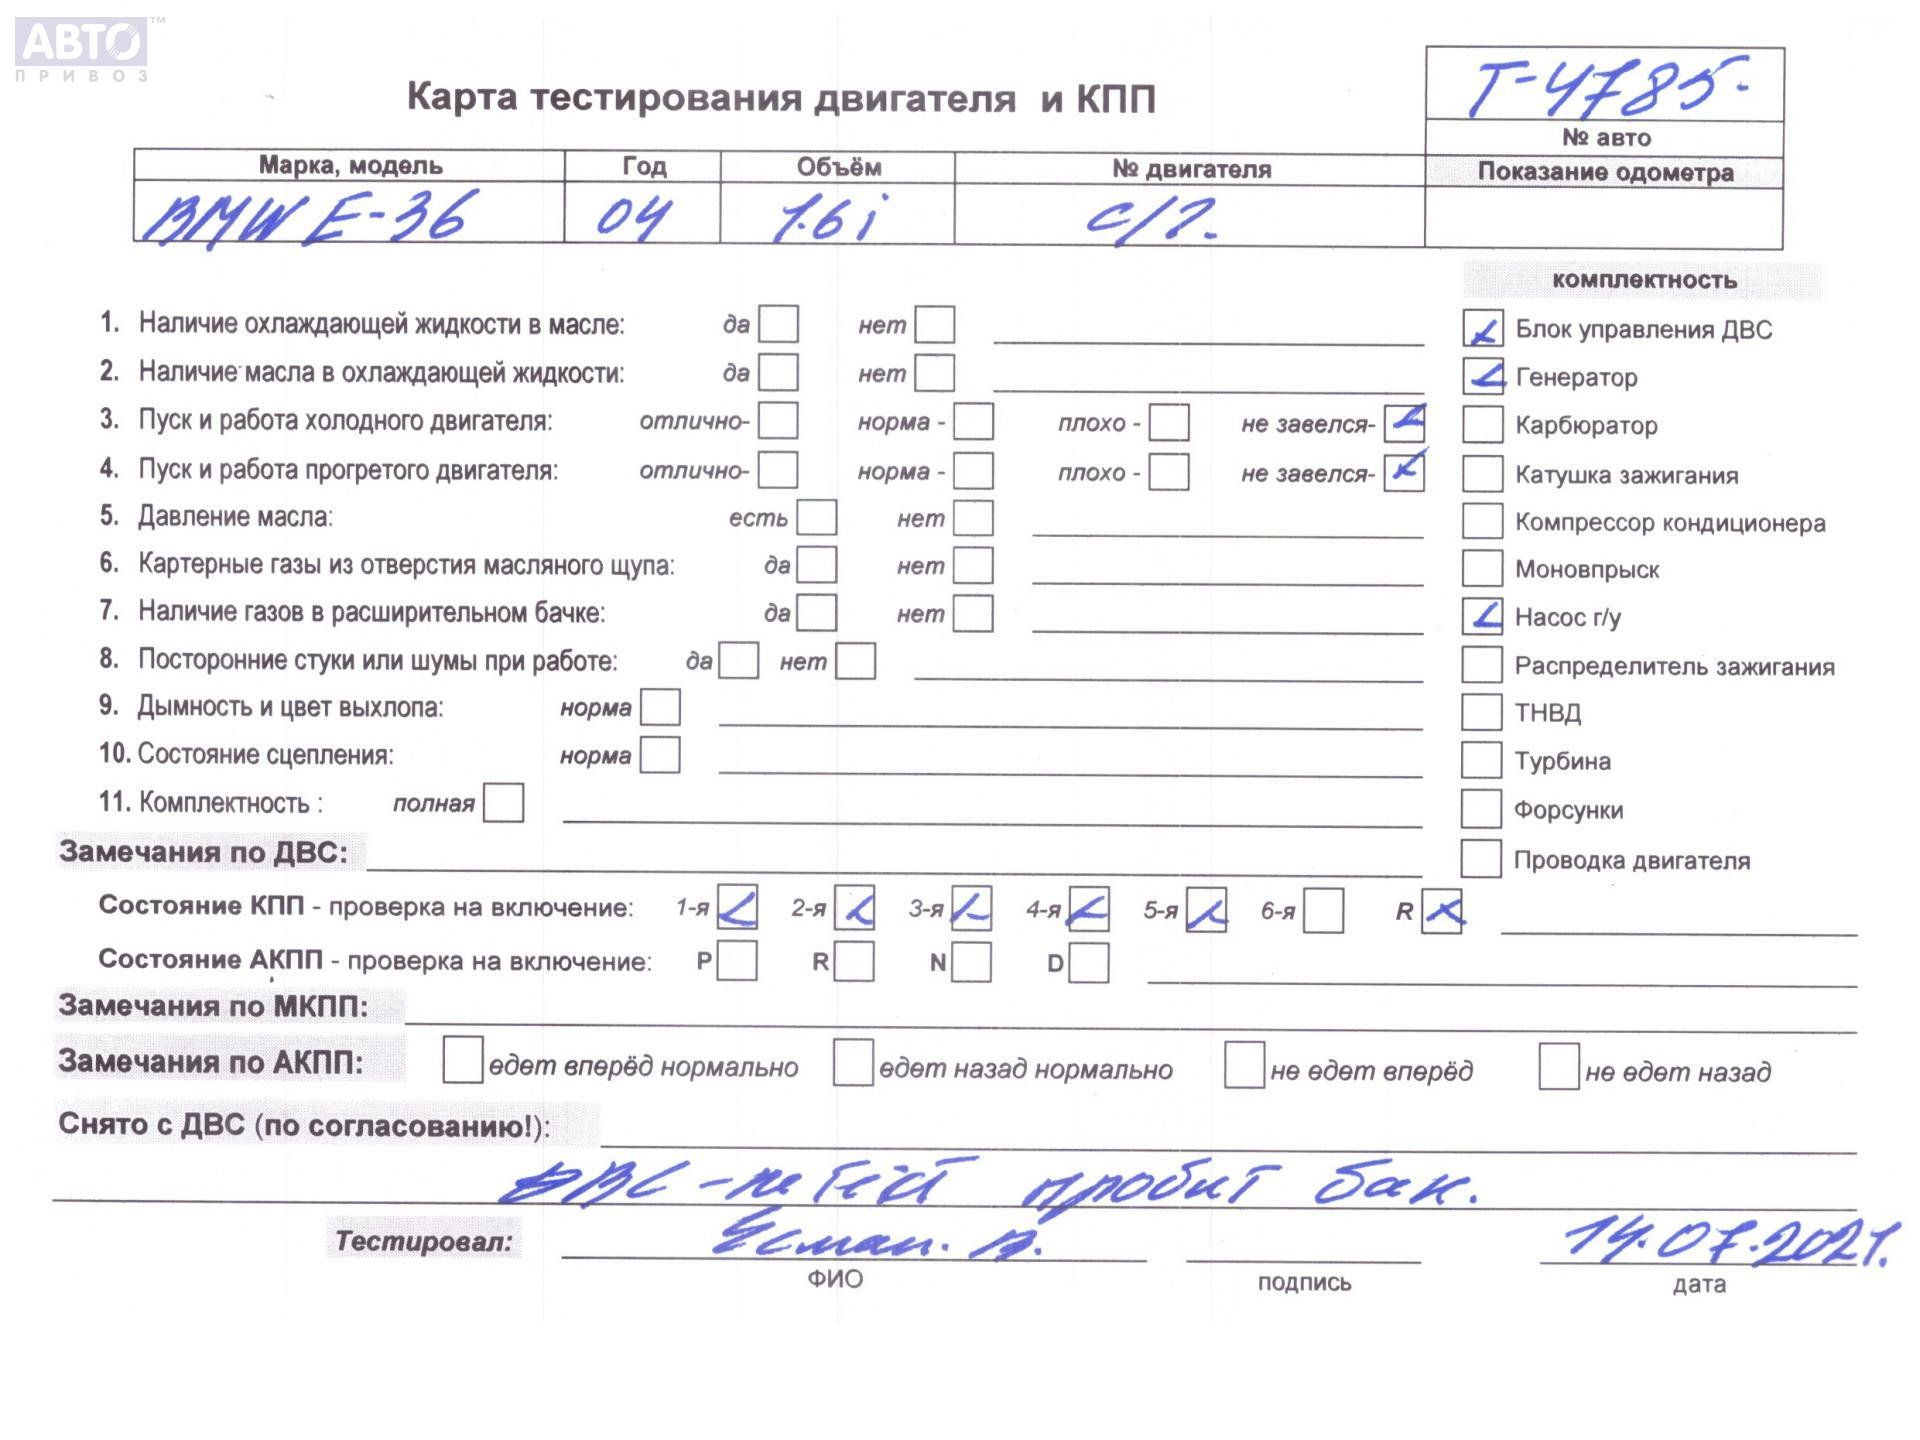 АВТО™
ПРИВОЗ
Т-4785.
Карта тестирования двигателя и КПП
№ авто
Марка, модель Год Объём № двигателя Показание одометра
BMW E-36 04 1.6i
комплектность
1. Наличие охлаждающей жидкости в масле: да нет Блок управления ДВС
2. Наличие масла в охлаждающей жидкости: да нет Генератор
3. Пуск и работа холодного двигателя: отлично- норма - плохо - не завелся- Карбюратор
4. Пуск и работа прогретого двигателя: отлично- норма - плохо - не завелся- Катушка зажигания
5. Давление масла: есть нет Компрессор кондиционера
6. Картерные газы из отверстия масляного щупа: да нет Моновпрыск
7. Наличие газов в расширительном бачке: да нет Насос г/у
8. Посторонние стуки или шумы при работе: да нет Распределитель зажигания
9. Дымность и цвет выхлопа: норма ТНВД
10. Состояние сцепления: норма Турбина
11. Комплектность : полная Форсунки
Замечания по ДВС: Проводка двигателя
Состояние КПП - проверка на включение: 1-я 2-я 3-я 4-я 5-я 6-я R
Состояние АКПП - проверка на включение: P R N D
Замечания по МКПП:
Замечания по АКПП: едет вперёд нормально едет назад нормально не едет вперёд не едет назад
Снято с ДВС (по согласованию!):
ДВС - не тест пробит бак.
Тестировал: 14.07.2021.
ФИО подпись дата